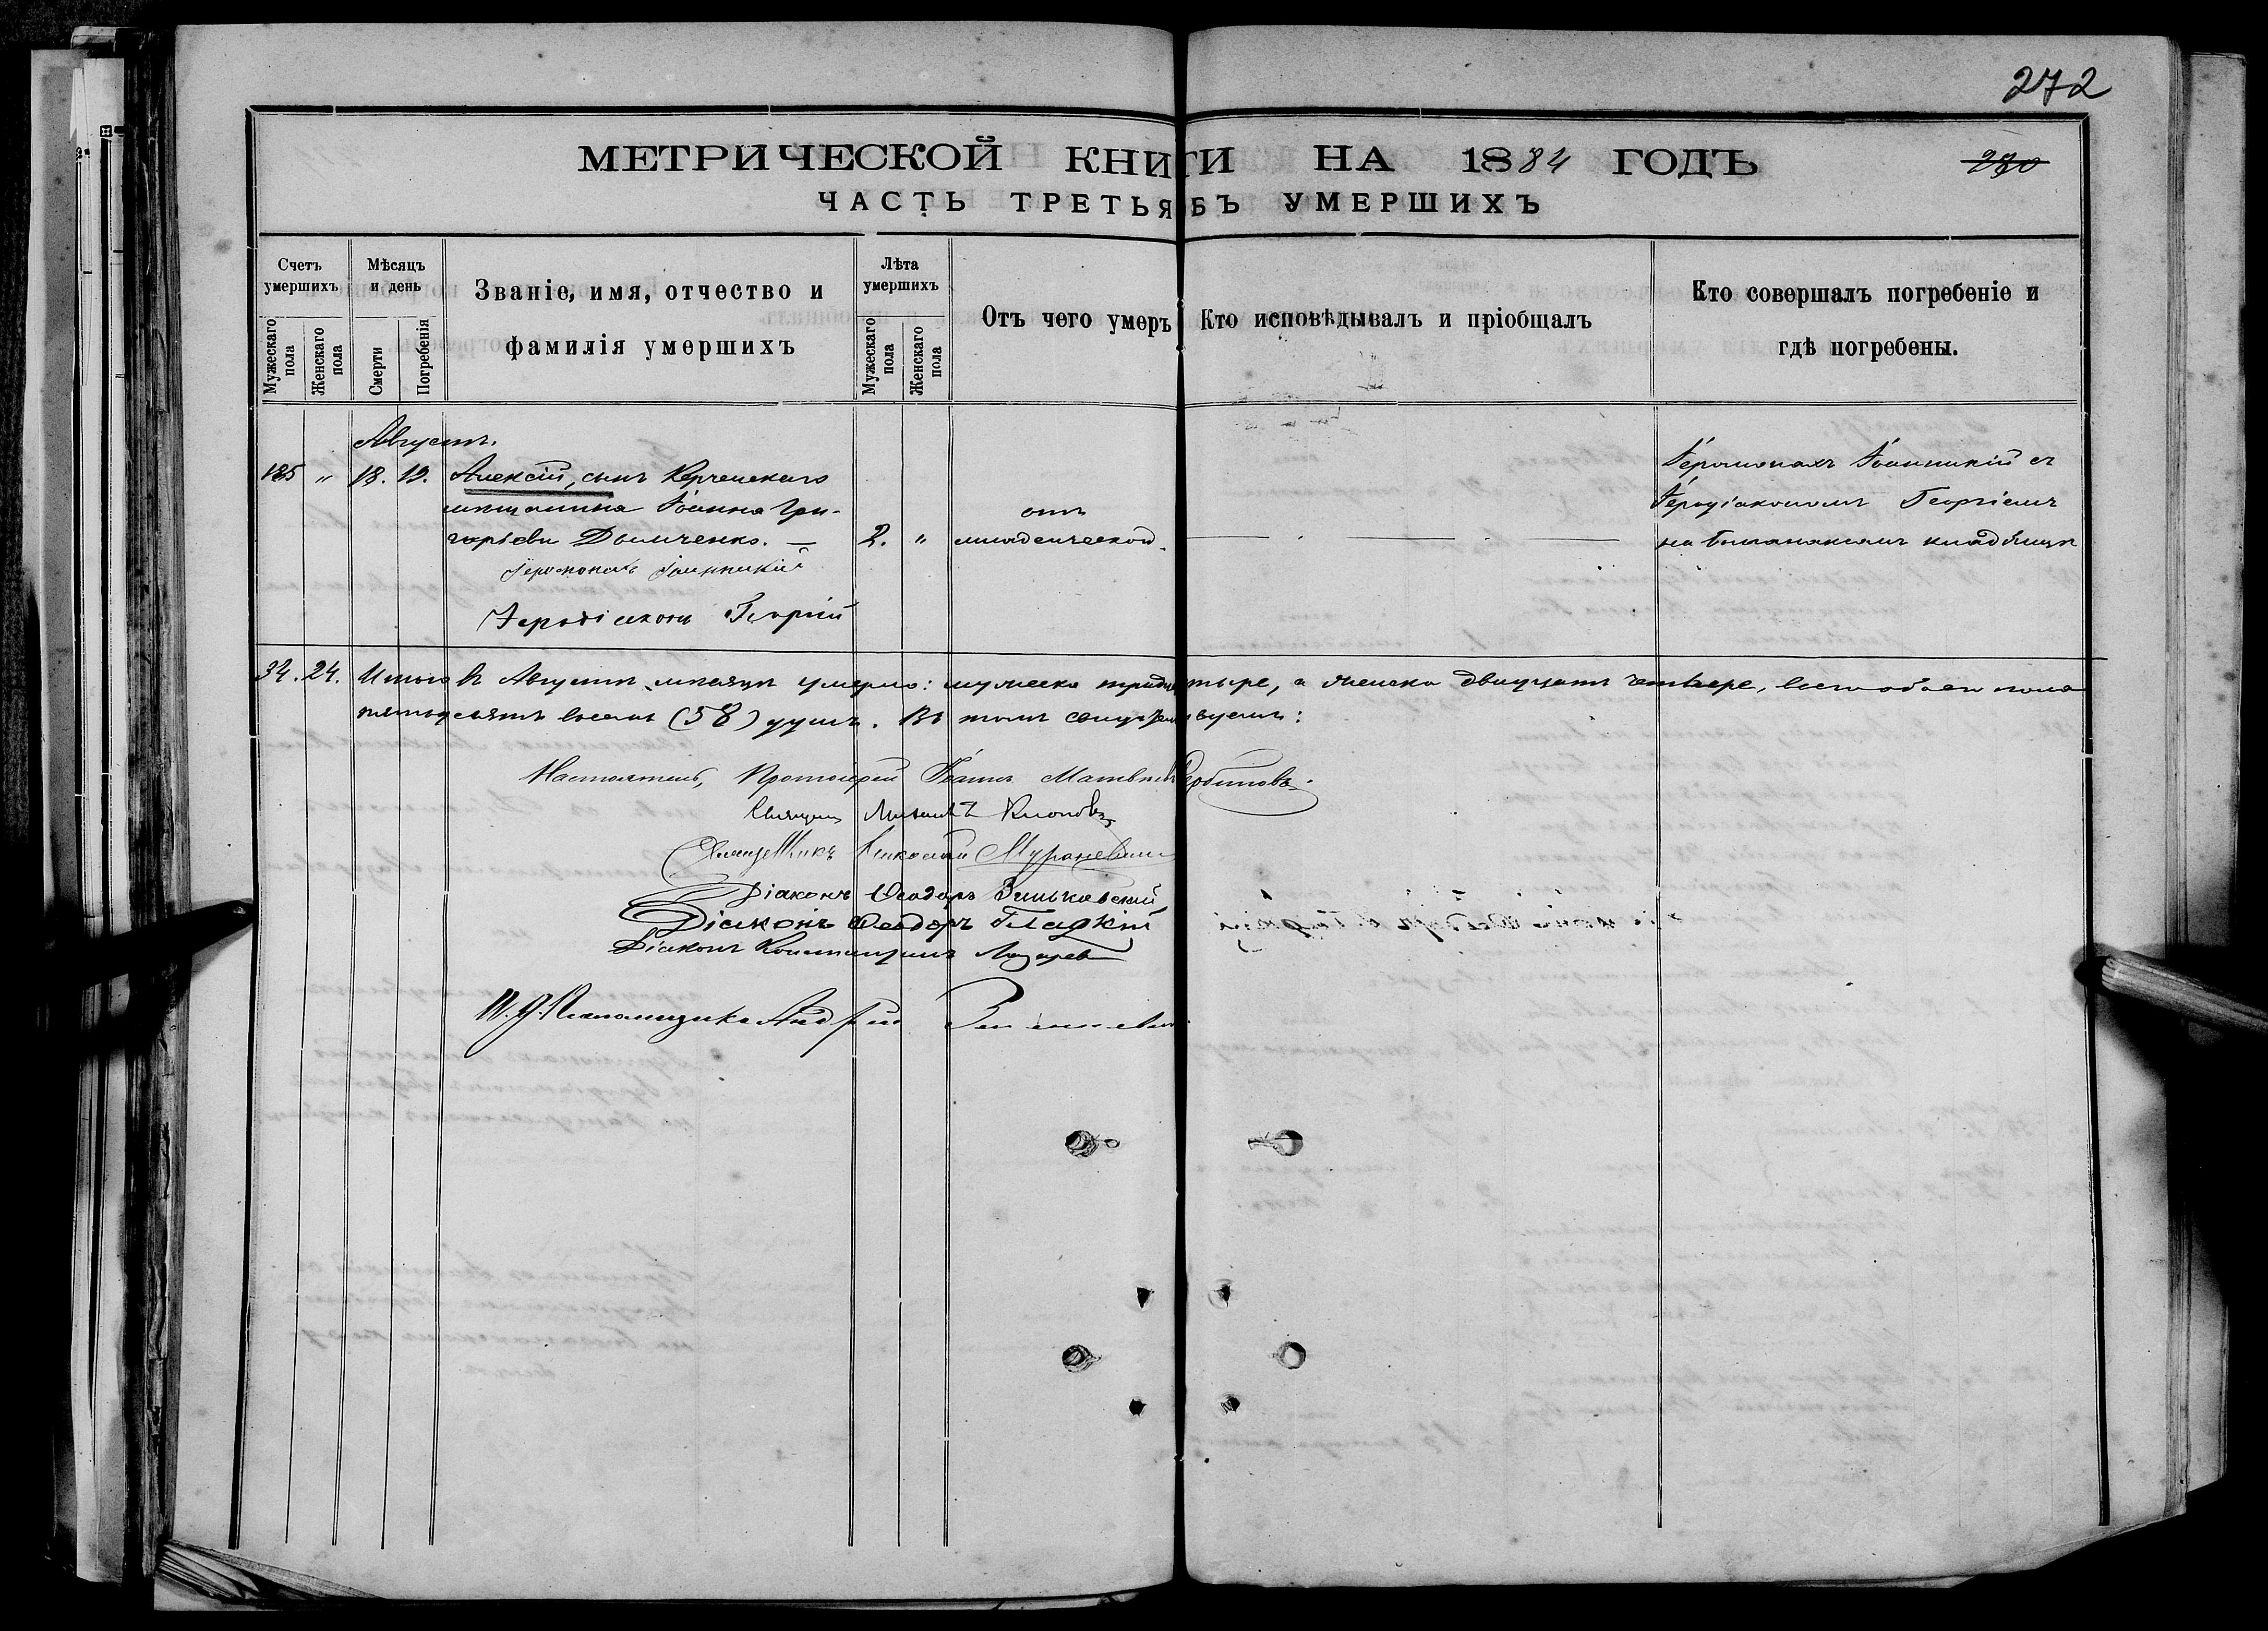 272
МЕТРИЧЕСКОЙ КНИГИ НА 1884 ГОДЪ
280
ЧАСТЬ ТРЕТЬЯ БЪ УМЕРШИХЪ
Счетъ умершихъ
Мужескаго пола
Женскаго пола
Мѣсяцъ и день
Смерти
Погребенія
Званіе, имя, отчество и
фамилія умершихъ
Лѣта умершихъ
Мужескаго пола
Женскаго пола
Отъ чего умеръ
Кто исповѣдывалъ и пріобщалъ
Кто совершалъ погребеніе и
гдѣ погребены.
Августъ.
185 " 18. 19. Алексій, сынъ Керченскаго
мѣщанина Іоанна Гри-
горьева Дымченко. —
2. "
отъ
младенческой.
Іеромонахъ Іоанникій съ
Іеродіакономъ Георгіемъ
на кладбищѣ
Іеромонахъ Іоанникій
Іеродіаконъ Георгій
34. 24. Итого въ Августѣ мѣсяцѣ умерло: мужеска тридцать тыре, а женска двадцать четыре, всего обоего пола
пятьдесятъ восемь (58) душъ. Въ томъ свидѣтельствуемъ:
Настоятель, Протоіерей Іоаннъ Матвѣевъ Сербиновъ.
Священ Михаилъ Клоповъ
Священникъ Николай Мураневичъ
Діаконъ Ѳеодоръ Зиньковскій
Діаконъ Ѳеодоръ Гладкій
Діаконъ Константинъ Лазаревъ
И. д. Псаломщика Андрей